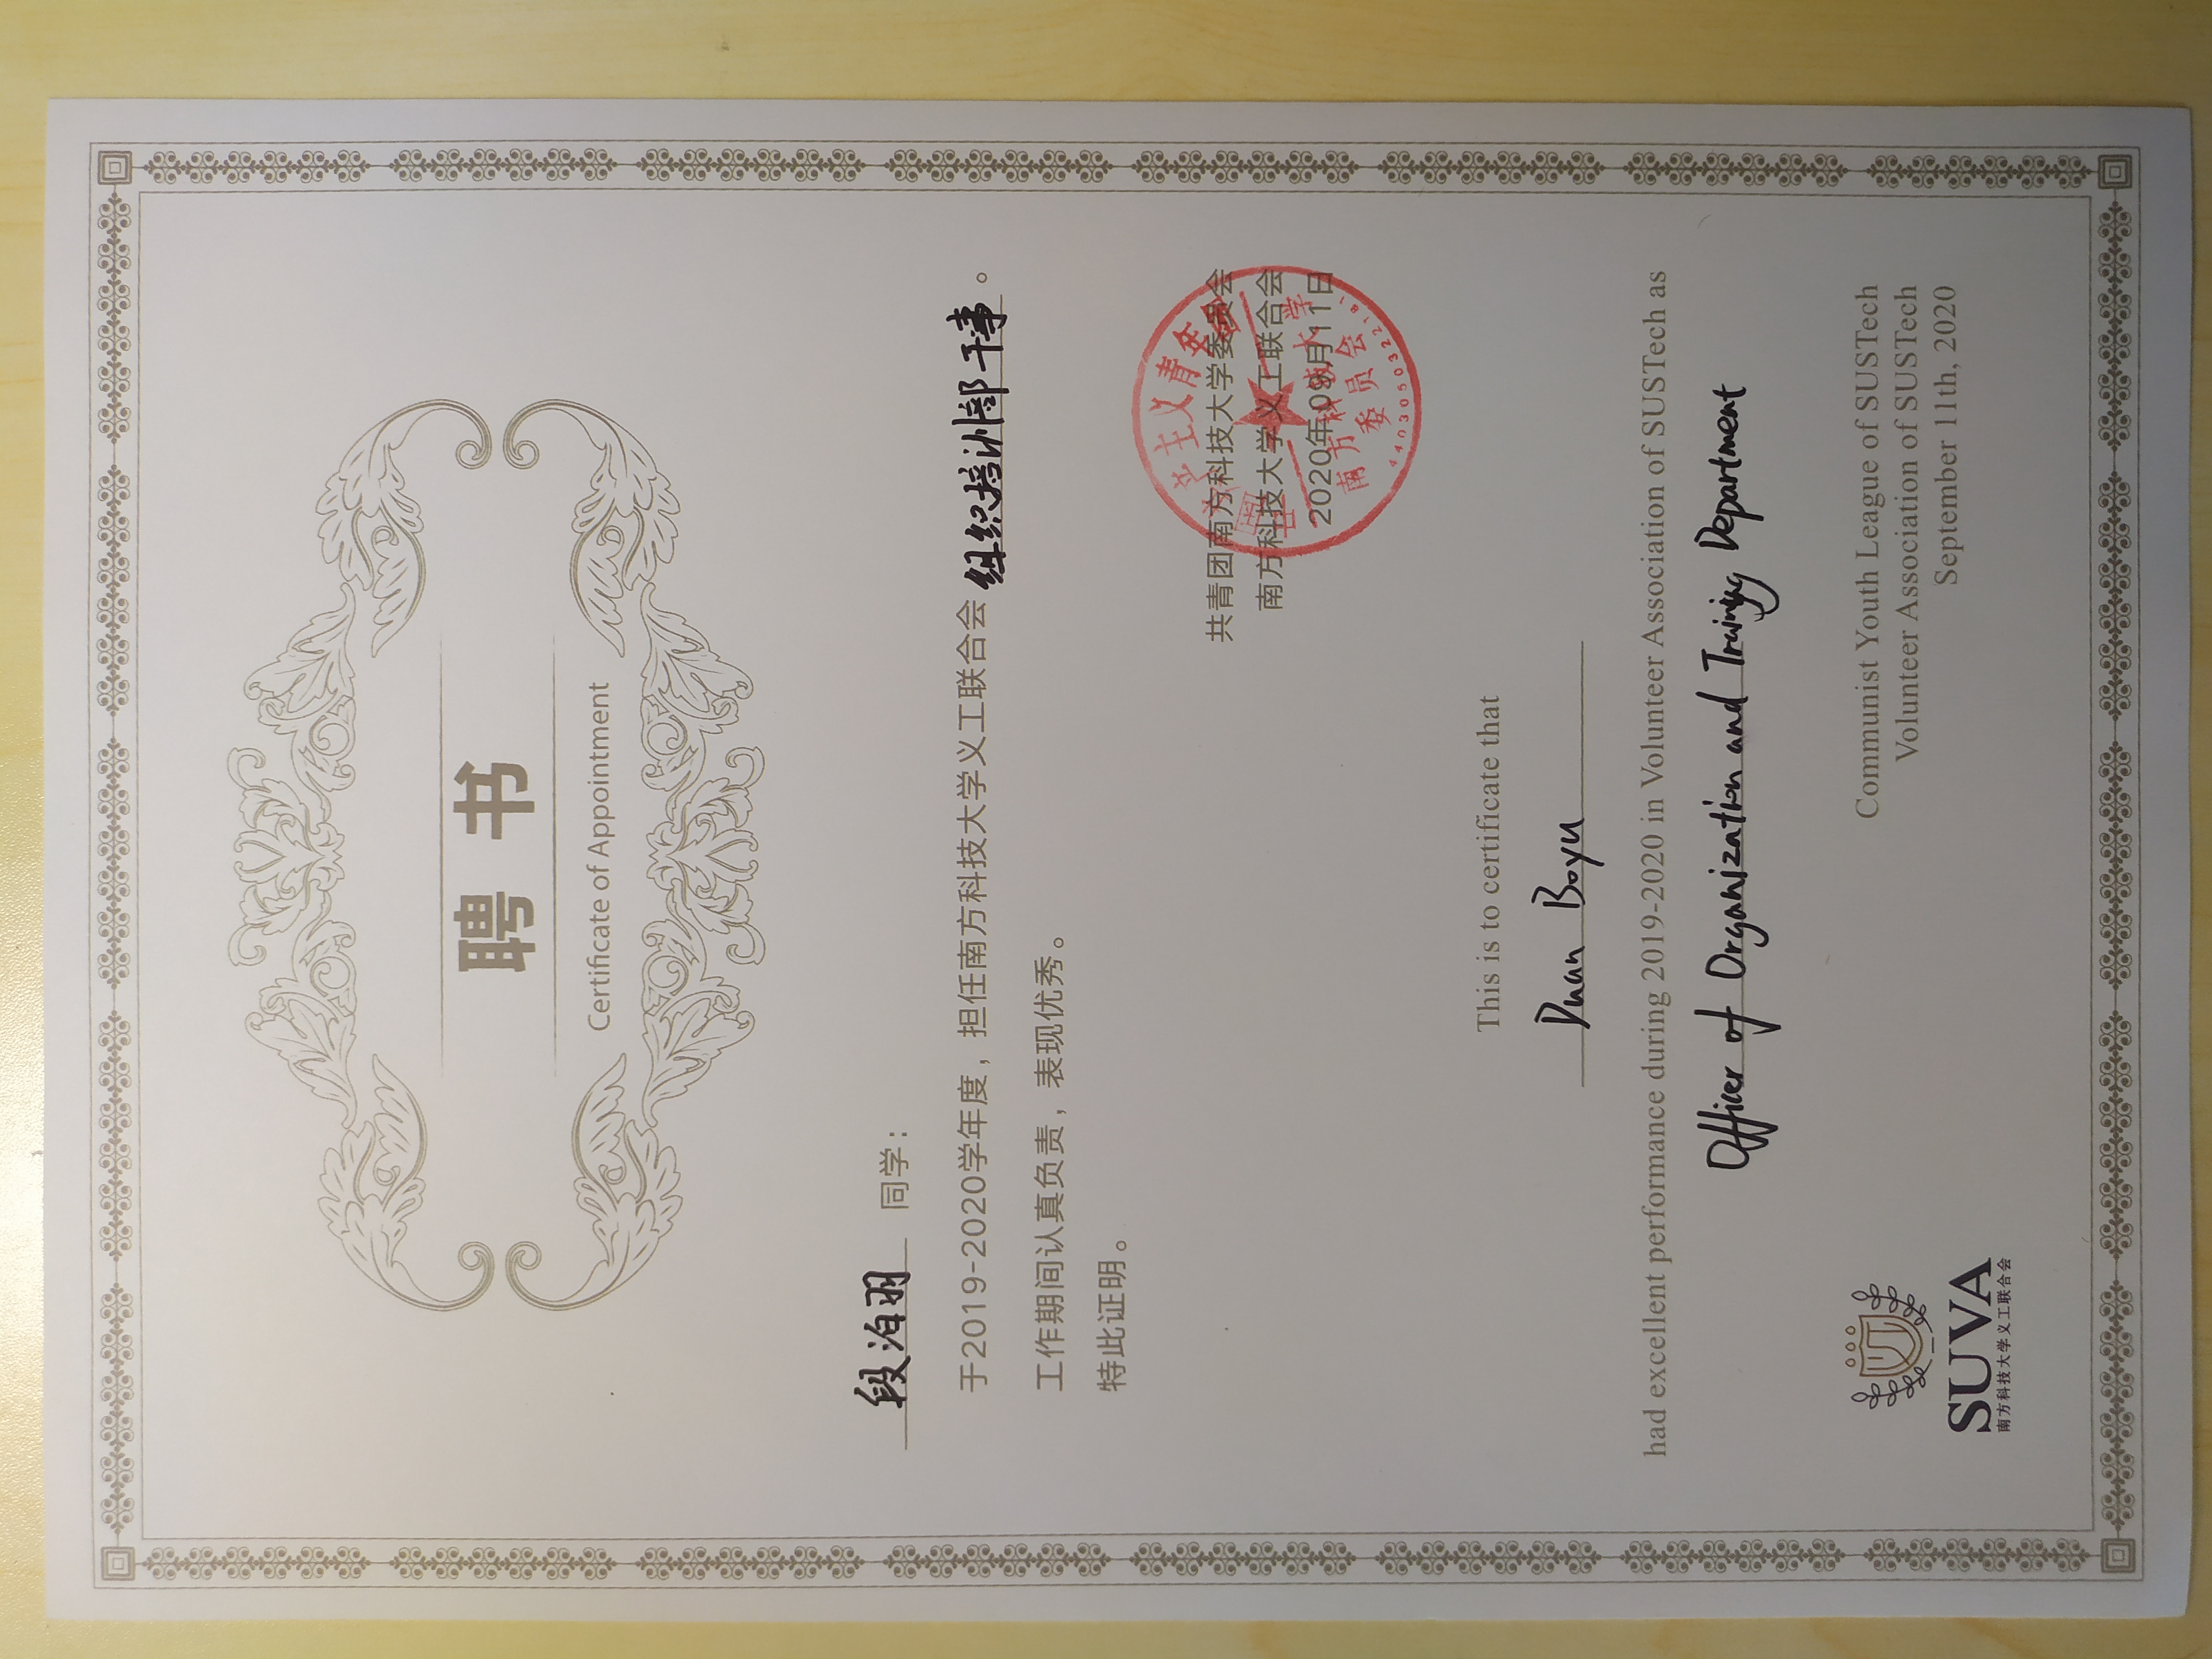 聘书
Certificate of Appointment
段泊羽 同学：
于2019-2020学年度，担任南方科技大学义工联合会组织培训部干事。
工作期间认真负责，表现优秀。
特此证明。
共青团南方科技大学委员会
南方科技大学义工联合会
2020年09月11日
中国共产主义青年团
南方科技大学
委员会
4403050322181
This is to certificate that
Duan Boyu
had excellent performance during 2019-2020 in Volunteer Association of SUSTech as
Officer of Organization and Training Department
Communist Youth League of SUSTech
Volunteer Association of SUSTech
September 11th, 2020
SUVA
南方科技大学义工联合会